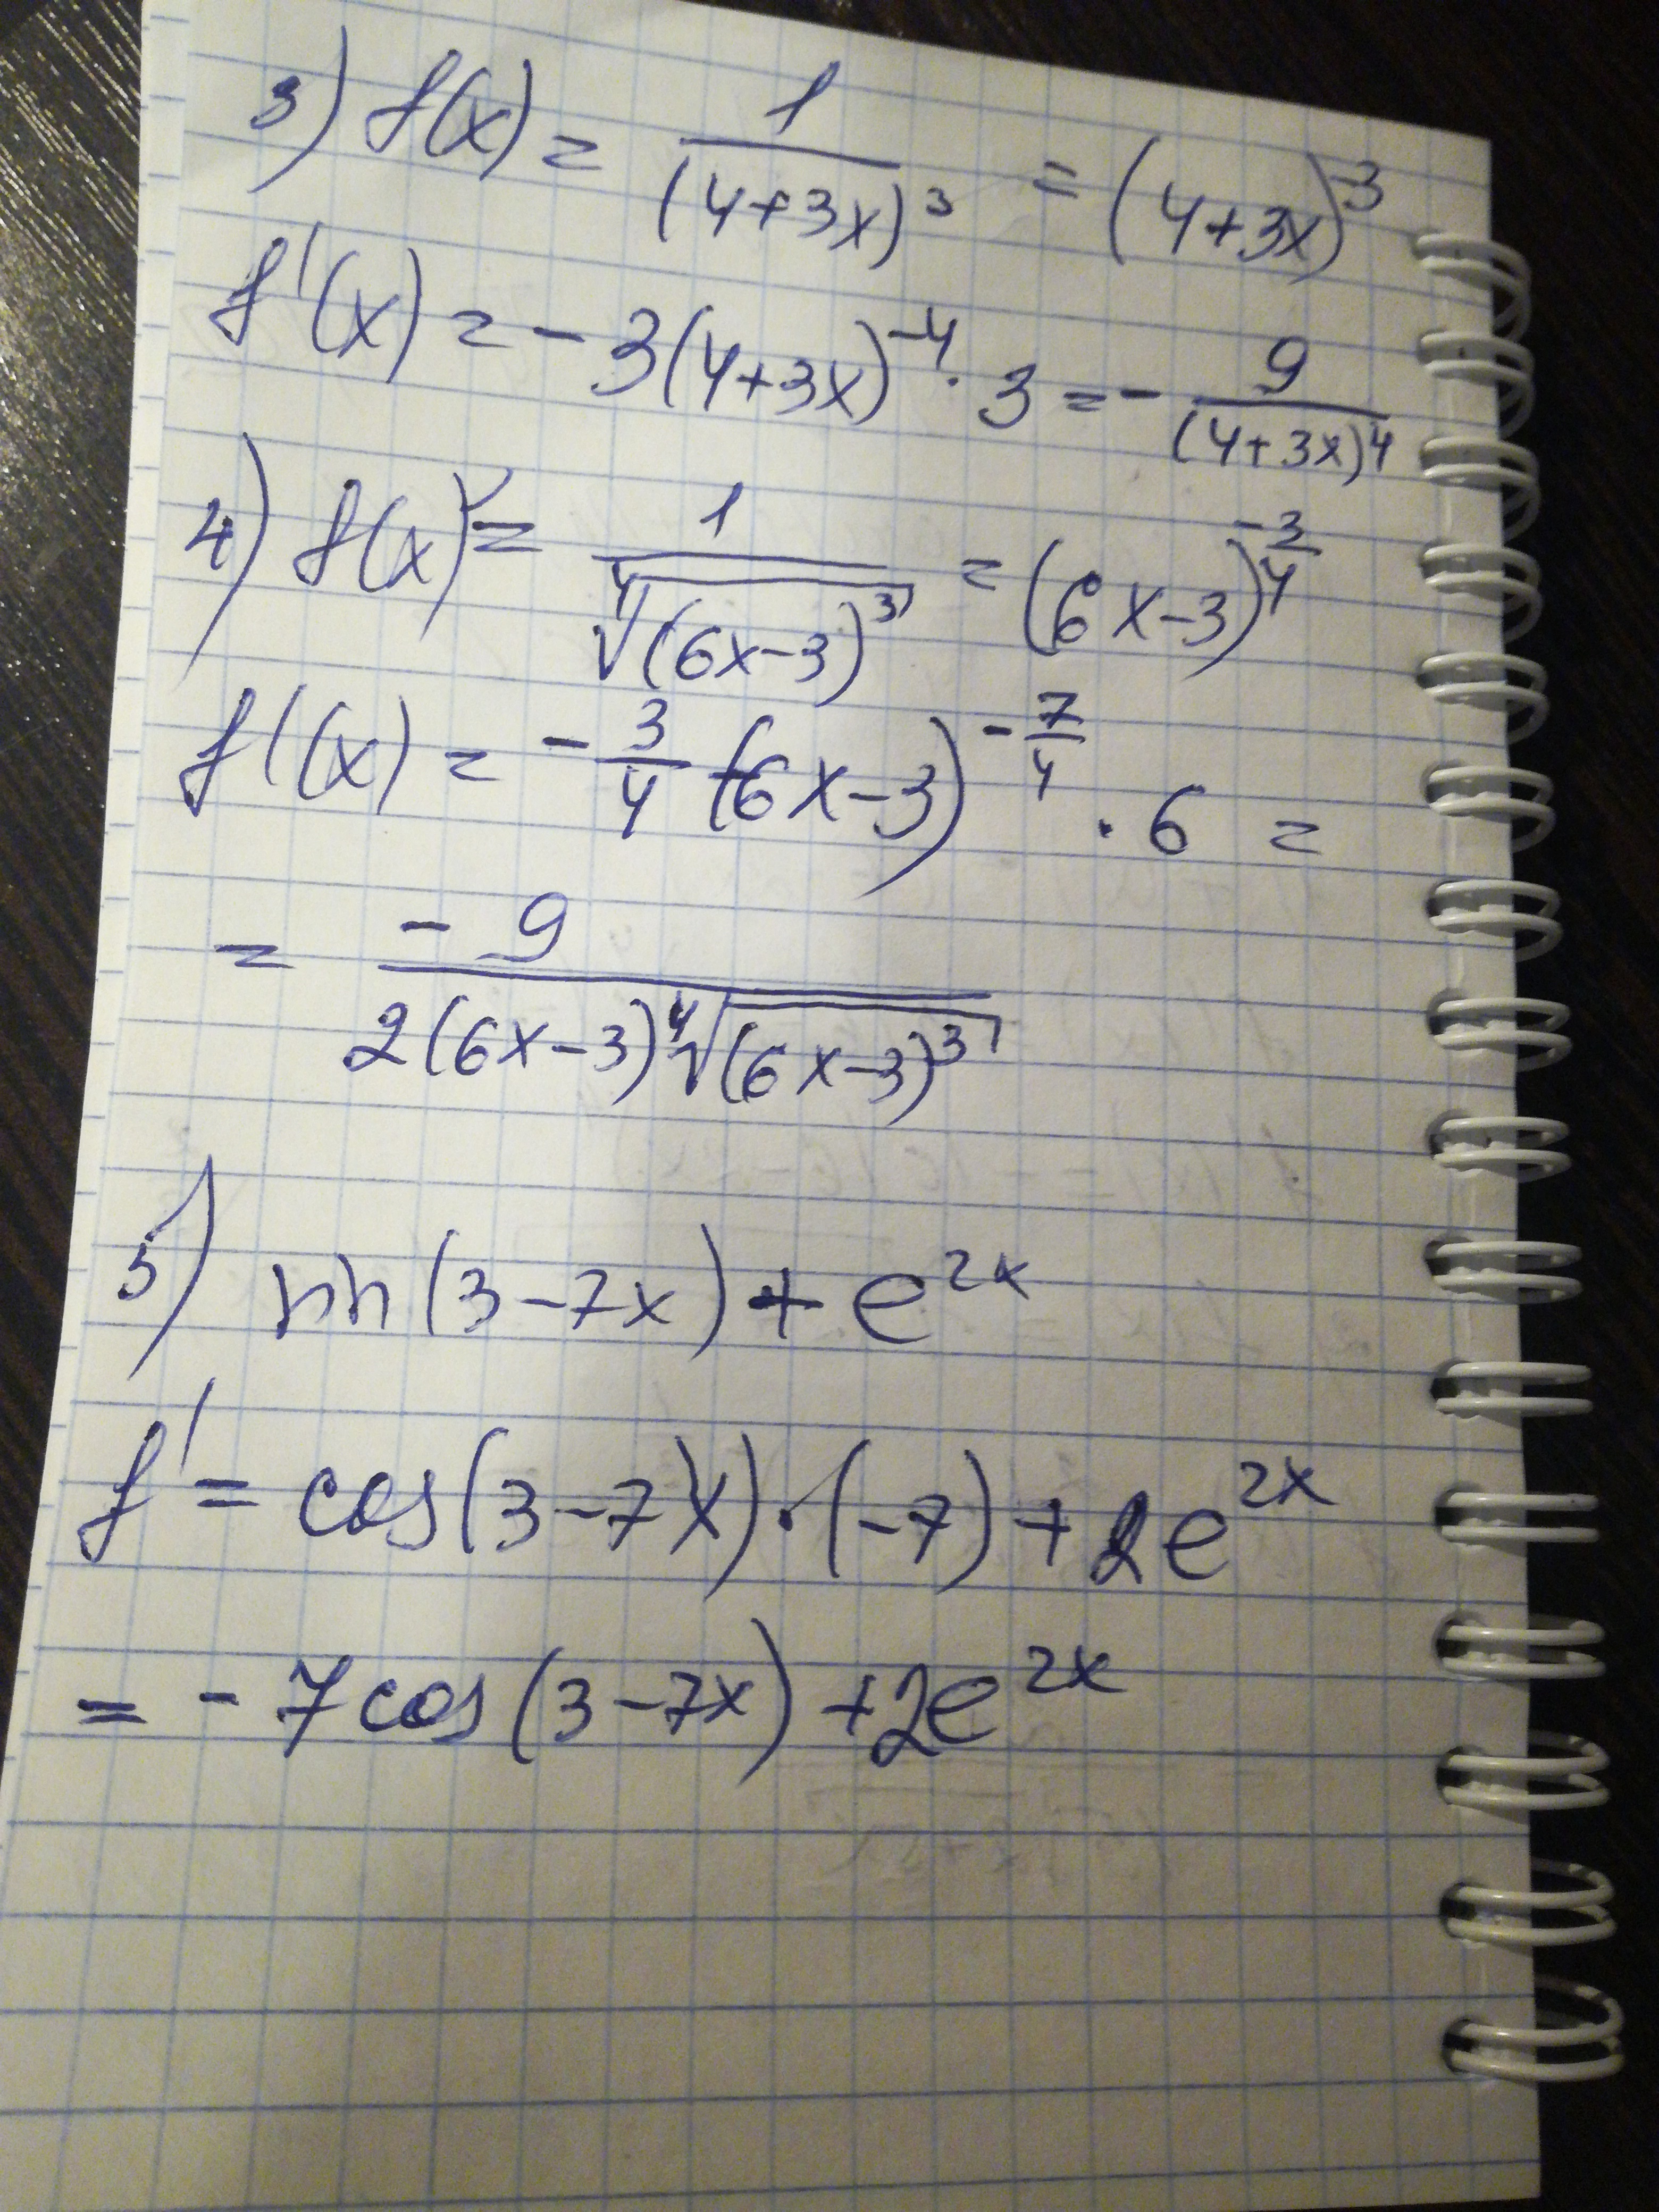 3) f(x) = 1/(4+3x)³ = (4+3x)⁻³
f'(x) = -3(4+3x)⁻⁴ · 3 = - 9/(4+3x)⁴
4) f(x) = 1/⁴√(6x-3)³ = (6x-3)^(-3/4)
f'(x) = - 3/4 (6x-3)^(-7/4) · 6 =
= -9/(2(6x-3)⁴√(6x-3)³)
5) sin(3-7x) + e^(2x)
f' = cos(3-7x) · (-7) + 2e^(2x)
= -7cos(3-7x) + 2e^(2x)